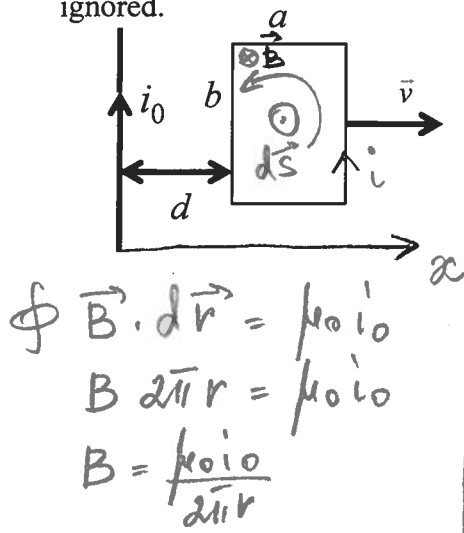 ignored.
a
⊗ B⃗
b
i₀
v⃗
dS⃗
i
d
x
∮ B⃗ · dr⃗ = μ₀i₀
B 2πr = μ₀i₀
B = μ₀i₀ / 2πr